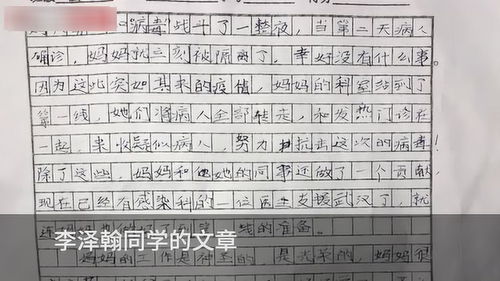 病毒"战斗了一整夜,当第二天病人
确诊,妈妈就立刻被隔离了,幸好没有什么事。
因为这此突如其来的疫情,妈妈的科室站到了
第一线,她们将病人全部转走,和发热门诊在
一起,来收疑似病人,努力抗击这次的病毒!
除了这些,妈妈和她的同事还做了一个贡献,
现在已经有感染科的一位医生支援武汉了,就
连 线的准备。
李泽翰同学的文章
妈妈的工作是神圣的,是光荣的,妈妈很